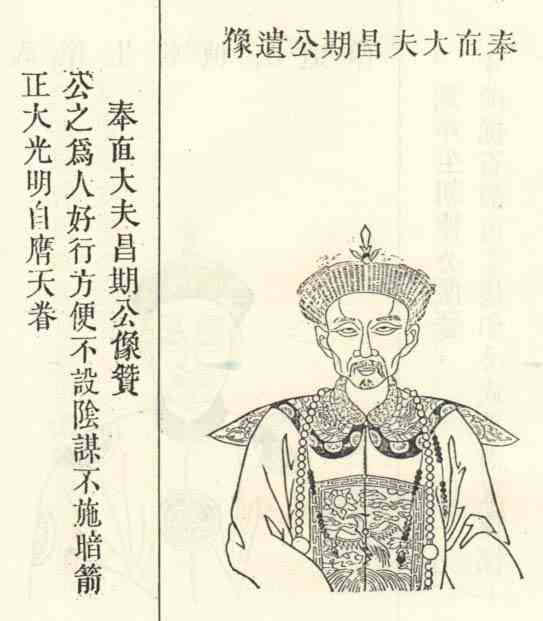 奉直大夫昌期公遺像
奉直大夫昌期公像贊
公之爲人好行方便不設陰謀不施暗箭
正大光明自膺天眷